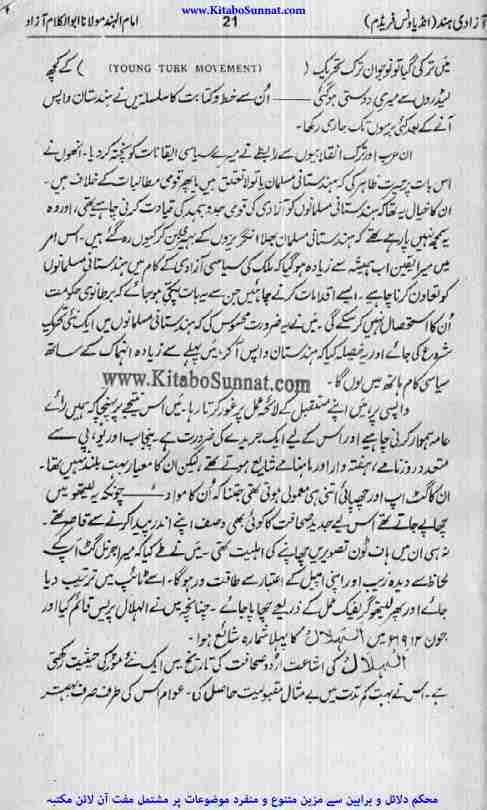 www.KitaboSunnat.com
آزادی ہند (انڈیا ونس فریڈم) 21 امام الہند مولانا ابوالکلام آزاد
میں ترکی گیا تو نوجوان ترک تحریک (YOUNG TURK MOVEMENT) کے کچھ
لیڈروں سے میری دوستی ہوگئی —— اُن سے خط و کتابت کا سلسلہ میں نے ہندستان واپس
آنے کے بعد کئی برسوں تک جاری رکھا۔
ان عرب اور ترک انقلابیوں سے رابطے نے میرے سیاسی ایقانات کو پختہ کر دیا۔ انھوں نے
اس بات پر حیرت ظاہر کی کہ ہندستانی مسلمان یا تو لاتعلق ہیں یا پھر قومی مطالبات کے خلاف ہیں۔
ان کا خیال یہ تھا کہ ہندستانی مسلمانوں کو آزادی کی قومی جدوجہد کی قیادت کرنی چاہیے تھی، اور وہ
یہ سمجھ نہیں پا رہے تھے کہ ہندستانی مسلمان بھلا انگریزوں کے بن کر کیوں رہ گئے ہیں۔ اس امر
میں میرا یقین اب ہمیشہ سے زیادہ ہوگیا کہ ملک کی سیاسی آزادی کے کام میں ہندستانی مسلمانوں
کو تعاون کرنا چاہیے۔ ایسے اقدامات کرنے چاہئیں جن سے یہ بات یقینی ہو جائے کہ برطانوی حکومت
اُن کا استحصال نہیں کر سکے گی۔ میں نے یہ ضرورت محسوس کی کہ ہندستانی مسلمانوں میں ایک نئی تحریک
شروع کی جائے اور یہ فیصلہ کیا کہ ہندستان واپس آکر، میں پہلے سے زیادہ انہماک کے ساتھ
سیاسی کام ہاتھ میں لوں گا۔
www.KitaboSunnat.com
واپسی پر، میں اپنے مستقبل کے لائحہ عمل پر غور کرتا رہا۔ میں اس نتیجے پر پہنچا کہ ہمیں رائے
عامہ ہموار کرنی چاہیے اور اس کے لیے ایک جریدے کی ضرورت ہے۔ پنجاب اور یو، پی سے
متعدد روزنامے، ہفتہ وار اور ماہنامے شایع ہوتے تھے لیکن ان کا معیار بہت بلند نہیں تھا۔
ان کا گٹ اپ اور چھپائی اتنی ہی معمولی ہوتی تھی جتنا کہ اُن کا مواد —— چونکہ یہ لیتھو میں
چھاپے جاتے تھے اس لیے جدید صحافت کا کوئی بھی وصف اپنے اندر پیدا کرنے سے قاصر تھے۔
نہ ہی ان میں ہاف ٹون تصویریں چھاپنے کی اہلیت تھی۔ میں نے طے کیا کہ میرا جرنل گٹ اَپ کے
لحاظ سے دیدہ زیب اور اپنی اپیل کے اعتبار سے طاقت ور ہوگا۔ اسے ٹائپ میں ترتیب دیا
جائے اور پھر لیتھوگریفک عمل کے ذریعے چھاپا جائے۔ چنانچہ میں نے الہلال پریس قائم کیا اور
جون ۱۹۱۲ء میں الہلال کا پہلا شمارہ شائع ہوا۔
الہلال کی اشاعت اردو صحافت کی تاریخ میں ایک نئے موڑ کی حیثیت رکھتی
ہے۔ اس نے بہت کم مدت میں بے مثال مقبولیت حاصل کی۔ عوام اس کی طرف صرف بہتر
محکم دلائل و براہین سے مزین متنوع و منفرد موضوعات پر مشتمل مفت آن لائن مکتبہ